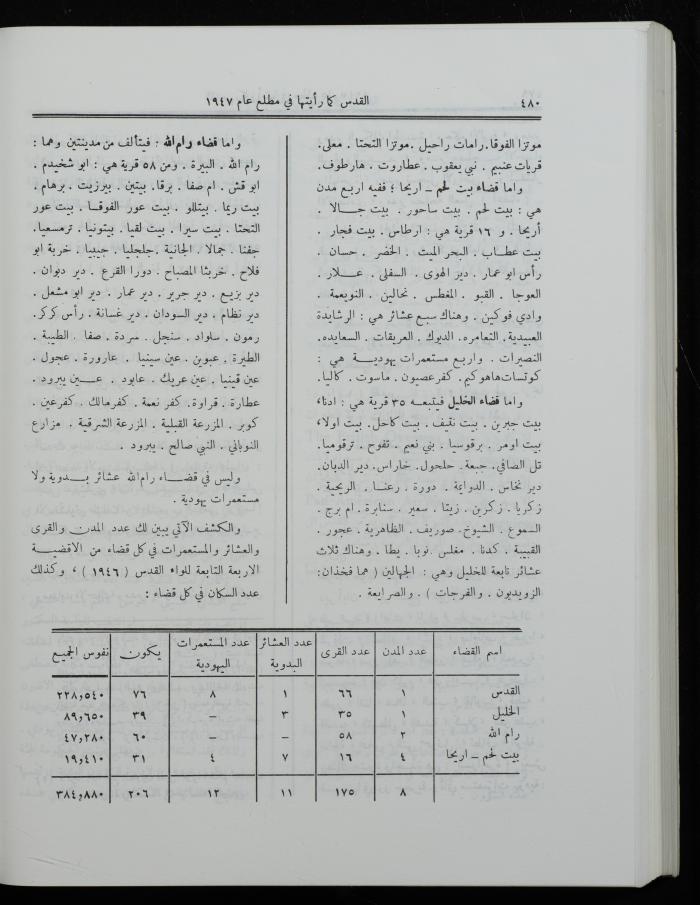 ٤٨٠
القدس كما رأيتها في مطلع عام ١٩٤٧
موتزا الفوقا. رامات راحيل . موتزا التحتا . معلى.
قريات عنبيم . نبي يعقوب . عطاروت . هارطوف.
واما قضاء بيت لحم – اريحا ؛ ففيه اربع مدن
هي : بيت لحم . بيت ساحور . بيت جالا .
أريحا . و ١٦ قرية هي : ارطاس . بيت فجار .
بيت عطاب . البحر الميت . الخضر . حسان .
رأس ابو عمار . دير الهوى . السفلى . علار .
العوجا . القبو . المغطس . نحالين . النويعمة .
وادي فوكين . وهناك سبع عشائر هي : الرشايدة
العبيدية. التعامره. الديوك . العريقات . السعايده.
النصيرات . واربع مستعمرات يهودية هي :
كوتسات هاهوكيم. كفر عصيون . ماسوت . كاليا.
واما قضاء الخليل فيتبعه ٣٥ قرية هي : ادنا،
بيت جبرين . بيت نقيف . بيت كاحل. بيت اولا،
بيت اومر. برقوسيا . بني نعيم . تفوح . ترقوميا.
تل الصافي. جبعة. حلحول. خاراس. دير الدبان.
دير نخاس . الدوايمة . دورة . رعنا . الريحية .
زكريا . زكرين . زيتا . سعير . سنابرة . ام برج .
السموع . الشيوخ. صوريف . الظاهرية . عجور .
القبيبة . كدنا . مغلس . نوبا . يطا . وهناك ثلاث
عشائر تابعة للخليل وهي : الجهالين ( هما فخذان:
الزويديون . والفرجات ) . والصرايعة .
واما قضاء رام الله ؛ فيتألف من مدينتين وهما :
رام الله . البيرة . ومن ٥٨ قرية هي : ابو شخيدم .
ابو قش . ام صفا . برقا. بيتين . بيرزيت . برهام .
بيت ريما . بيتللو . بيت عور الفوقا . بيت عور
التحتا . بيت سيرا . بيت لقيا . بيتونيا . ترمسعيا.
جفنا . جمالا . الجانية . جلجليا . جيبيا . خربة ابو
فلاح . خربثا المصباح . دورا القرع . دير دبوان .
دير بزيع . دير جرير . دير عمار . دير ابو مشعل .
دير نظام . دير السودان . دير غسانة . رأس كركر.
رمون . سلواد . سنجل . سردة . صفا . الطيبة .
الطيرة . عبوين . عين سينيا . عارورة . عجول .
عين قينيا . عين عريك . عابود . عين يبرود .
عطارة . قراوة. كفر نعمة . كفرمالك . كفرعين .
كوبر . المزرعة القبلية . المزرعة الشرقية . مزارع
النوباني . النبي صالح . يبرود .
وليس في قضاء رام الله عشائر بدوية ولا
مستعمرات يهودية .
والكشف الآتي يبين لك عدد المدن والقرى
والعشائر والمستعمرات في كل قضاء من الاقضية
الاربعة التابعة للواء القدس ( ١٩٤٦ ) ، وكذلك
عدد السكان في كل قضاء :
اسم القضاء عدد المدن عدد القرى عدد العشائر البدوية عدد المستعمرات اليهودية يكون نفوس الجميع
القدس ١ ٦٦ ١ ٨ ٧٦ ٢٢٨,٥٤٠
الخليل ١ ٣٥ ٣ – ٣٩ ٨٩,٦٥٠
رام الله ٢ ٥٨ – – ٦٠ ٤٧,٢٨٠
بيت لحم – اريحا ٤ ١٦ ٧ ٤ ٣١ ١٩,٤١٠
٨ ١٧٥ ١١ ١٢ ٢٠٦ ٣٨٤,٨٨٠